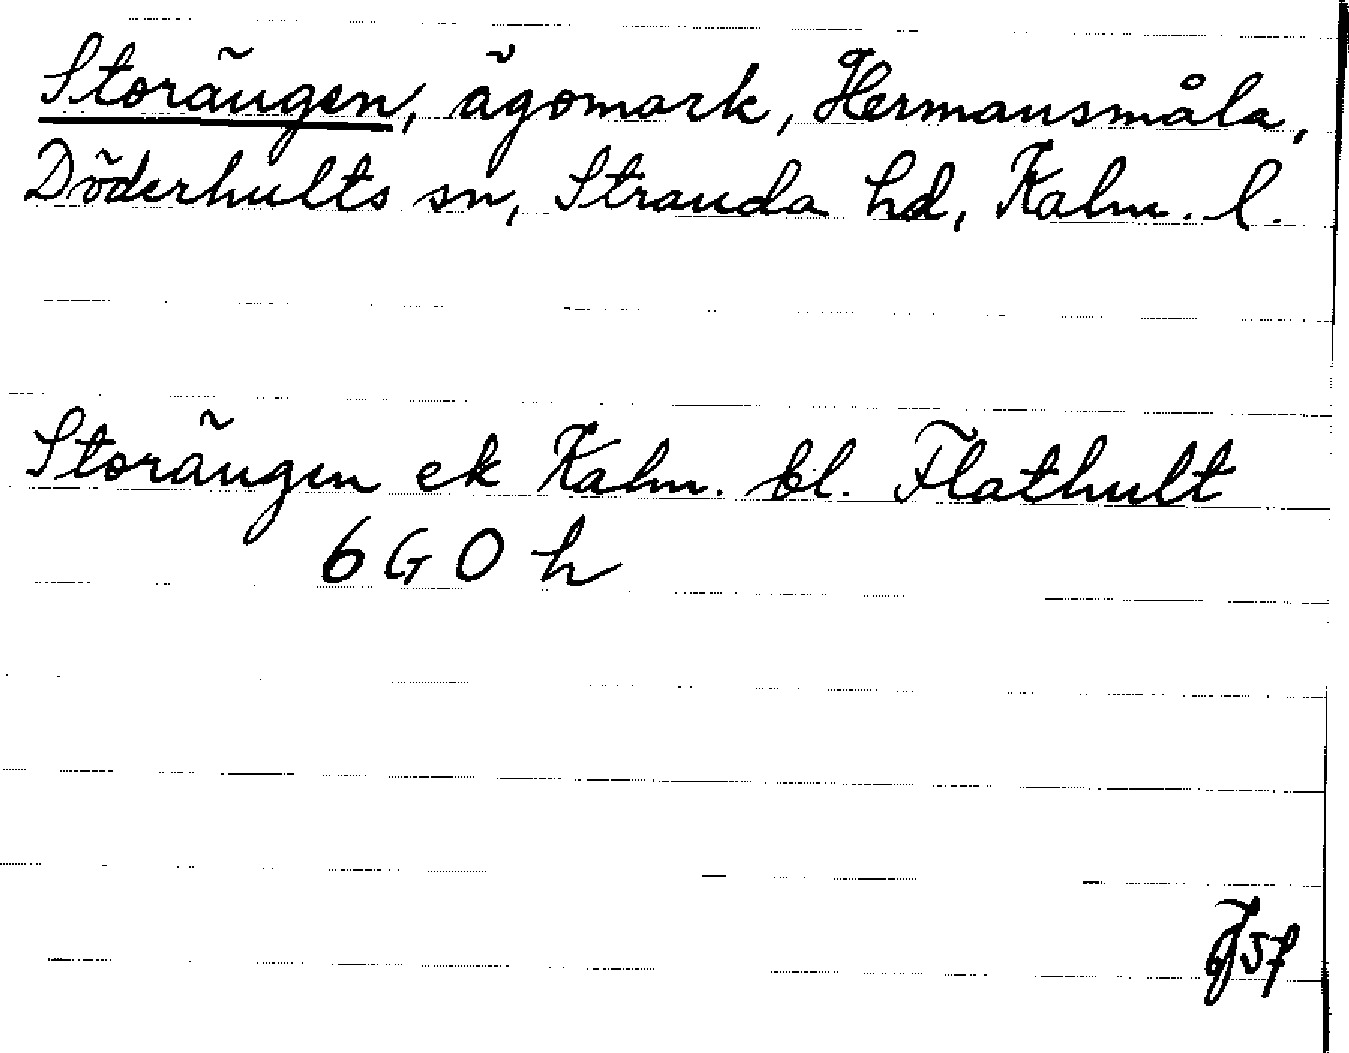 Storängen, ägomark, Hermansmåla,
Döderhults sn, Stranda hd, Kalm. l.
Storängen ek Kalm. bl. Flathult
6 G 0 h